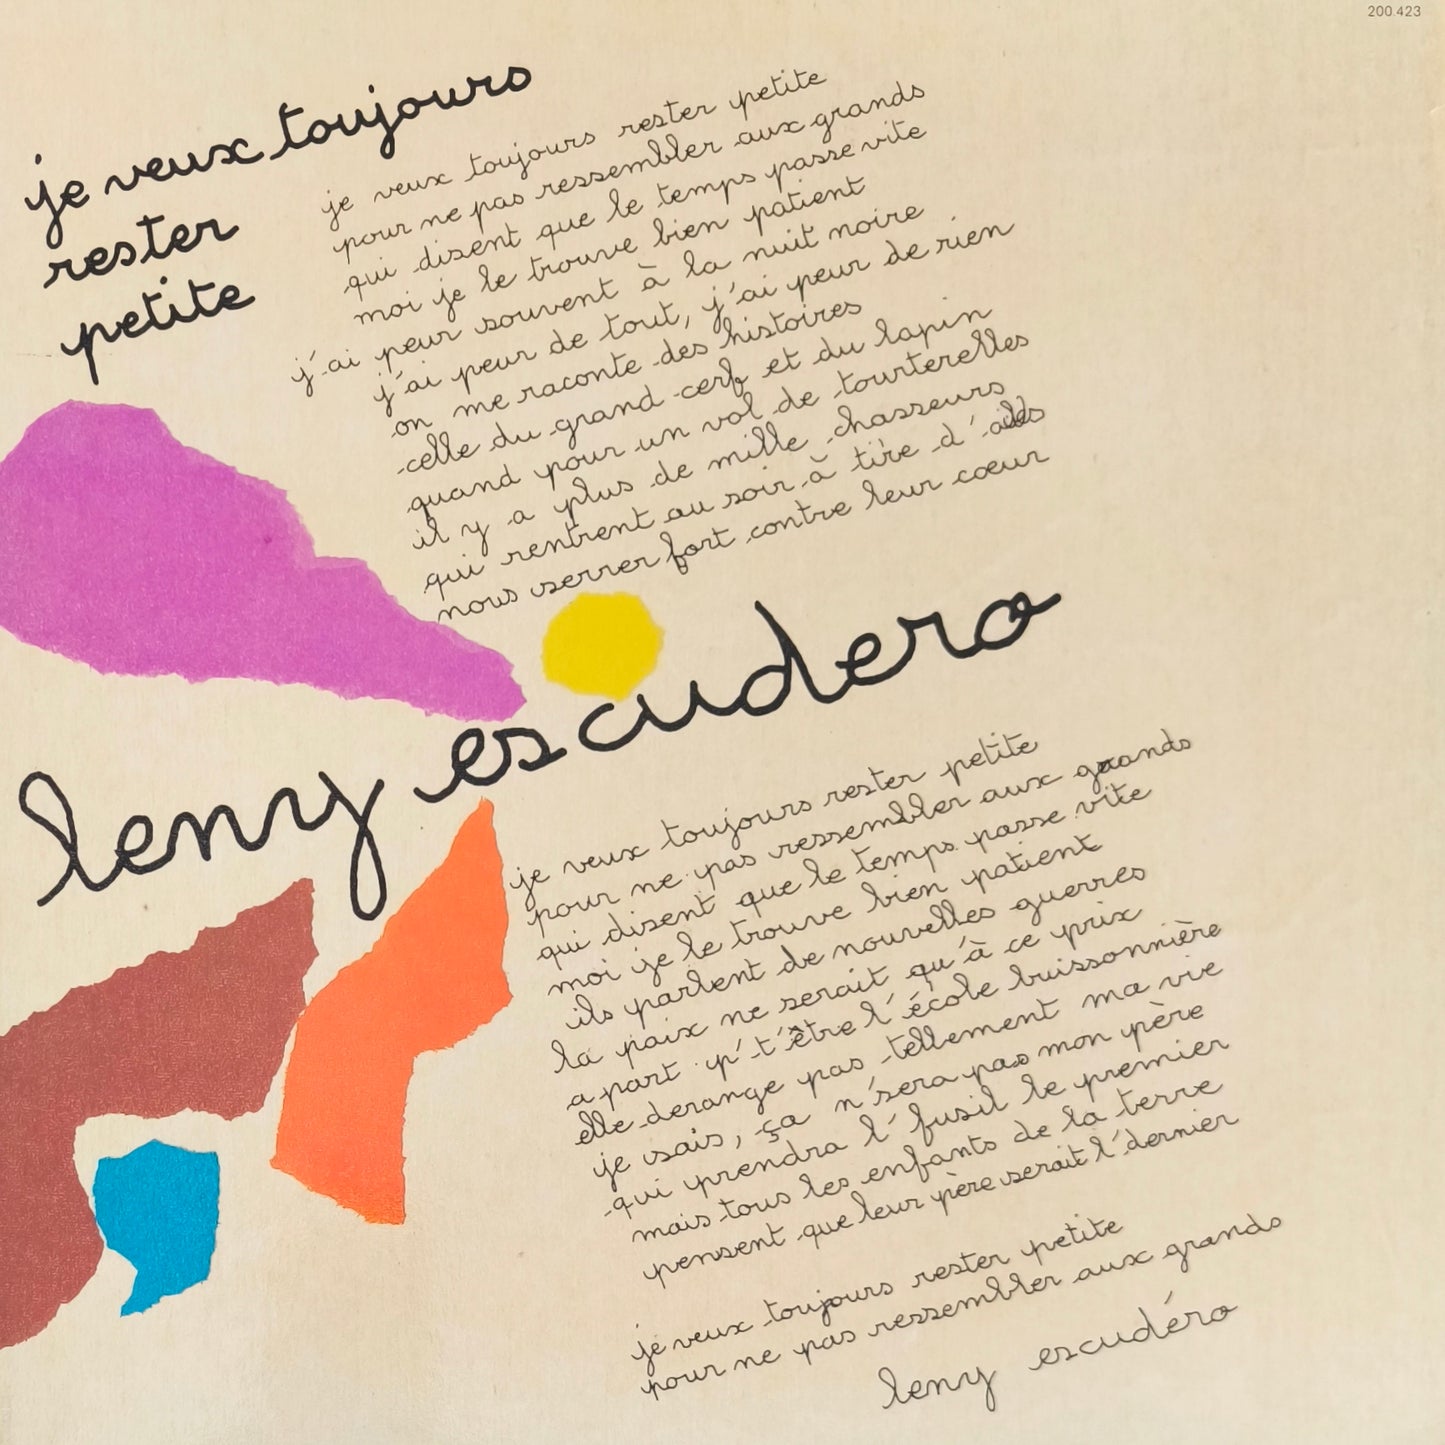 200.423
je veux toujours
rester
petite
je veux toujours rester petite
pour ne pas ressembler aux grands
qui disent que le temps passe vite
moi je le trouve bien patient
j'ai peur souvent à la nuit noire
j'ai peur de tout, j'ai peur de rien
on me raconte des histoires
celle du grand cerf et du lapin
quand pour un vol de tourterelles
il y a plus de mille chasseurs
qui rentrent au soir à tire d'ailes
nous serrer fort contre leur cœur
leny escudero
je veux toujours rester petite
pour ne pas ressembler aux grands
qui disent que le temps passe vite
moi je le trouve bien patient
ils parlent de nouvelles guerres
la paix ne serait qu'à ce prix
a part p't'être l'école buissonnière
elle derange pas tellement ma vie
je sais, ça n'sera pas mon père
qui prendra l'fusil le premier
mais tous les enfants de la terre
pensent que leur père serait l'dernier
je veux toujours rester petite
pour ne pas ressembler aux grands
leny escudéro